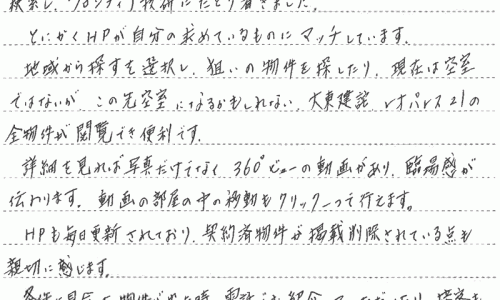 検索し、クオンティブ技研にたどり着きました。
とにかくHPが自分の求めているものにマッチしています。
地域から探すを選択し、狙いの物件を探したり、現在は空室
ではないが、この先空室になるかもしれない、大東建託、レオパレス21の
全物件が閲覧でき便利です。
詳細を見れば写真だけでなく、360°ビューの動画があり、臨場感が
伝わります。動画の部屋の中の移動もクリック一つで行えます。
HPも毎日更新されており、契約済物件が掲載削除されている点も
親切に感じます。